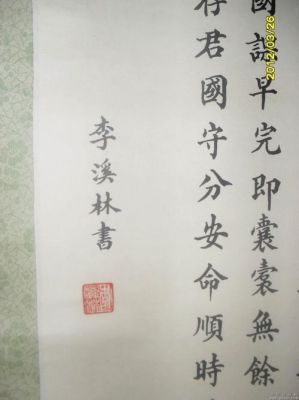 國課早完即囊橐無餘
存君國守分安命順時
李溪林書
2012/03/26